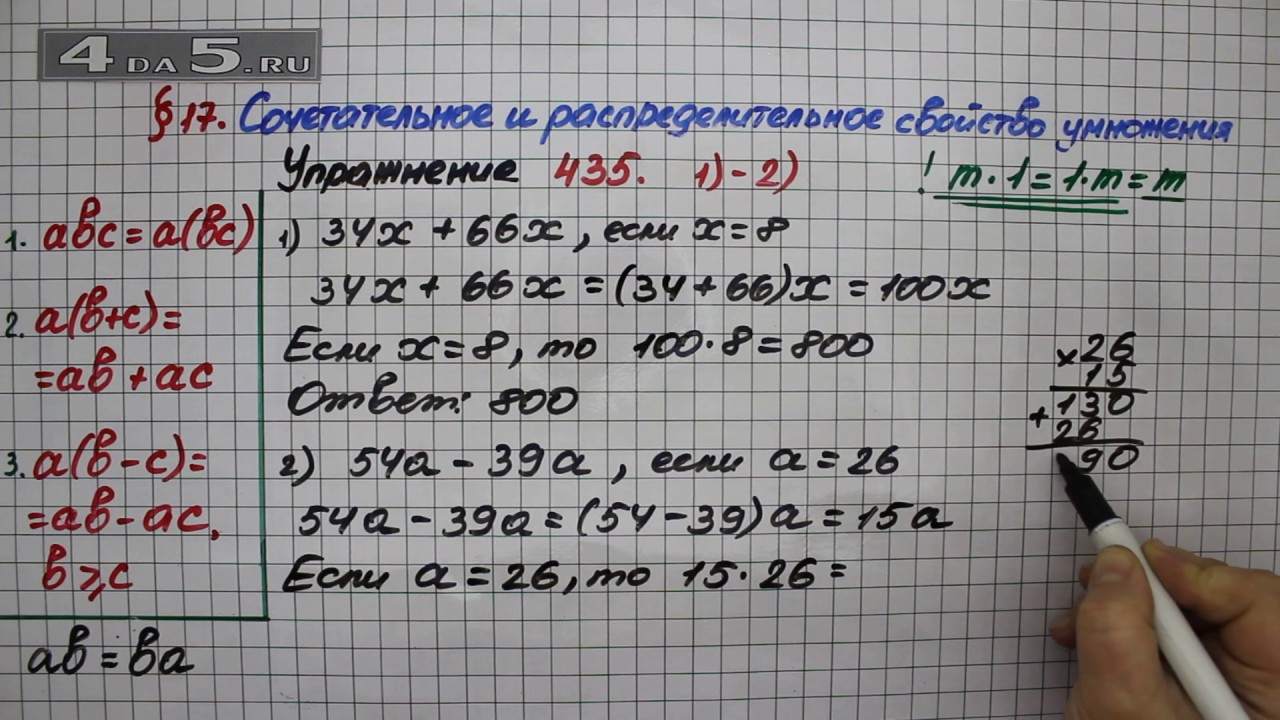 4DA5.RU
§17. Сочетательное и распределительное свойство умножения
Упражнение 435. 1)-2)
! m·1=1·m=m
1. abc=a(bc)
2. a(b+c)=
=ab+ac
3. a(b-c)=
=ab-ac,
b⩾c
ab=ba
1) 34x+66x, если x=8
34x+66x=(34+66)x=100x
Если x=8, то 100·8=800
Ответ: 800
2) 54a-39a, если a=26
54a-39a=(54-39)a=15a
Если a=26, то 15·26=
×26
15
130
+
26
90